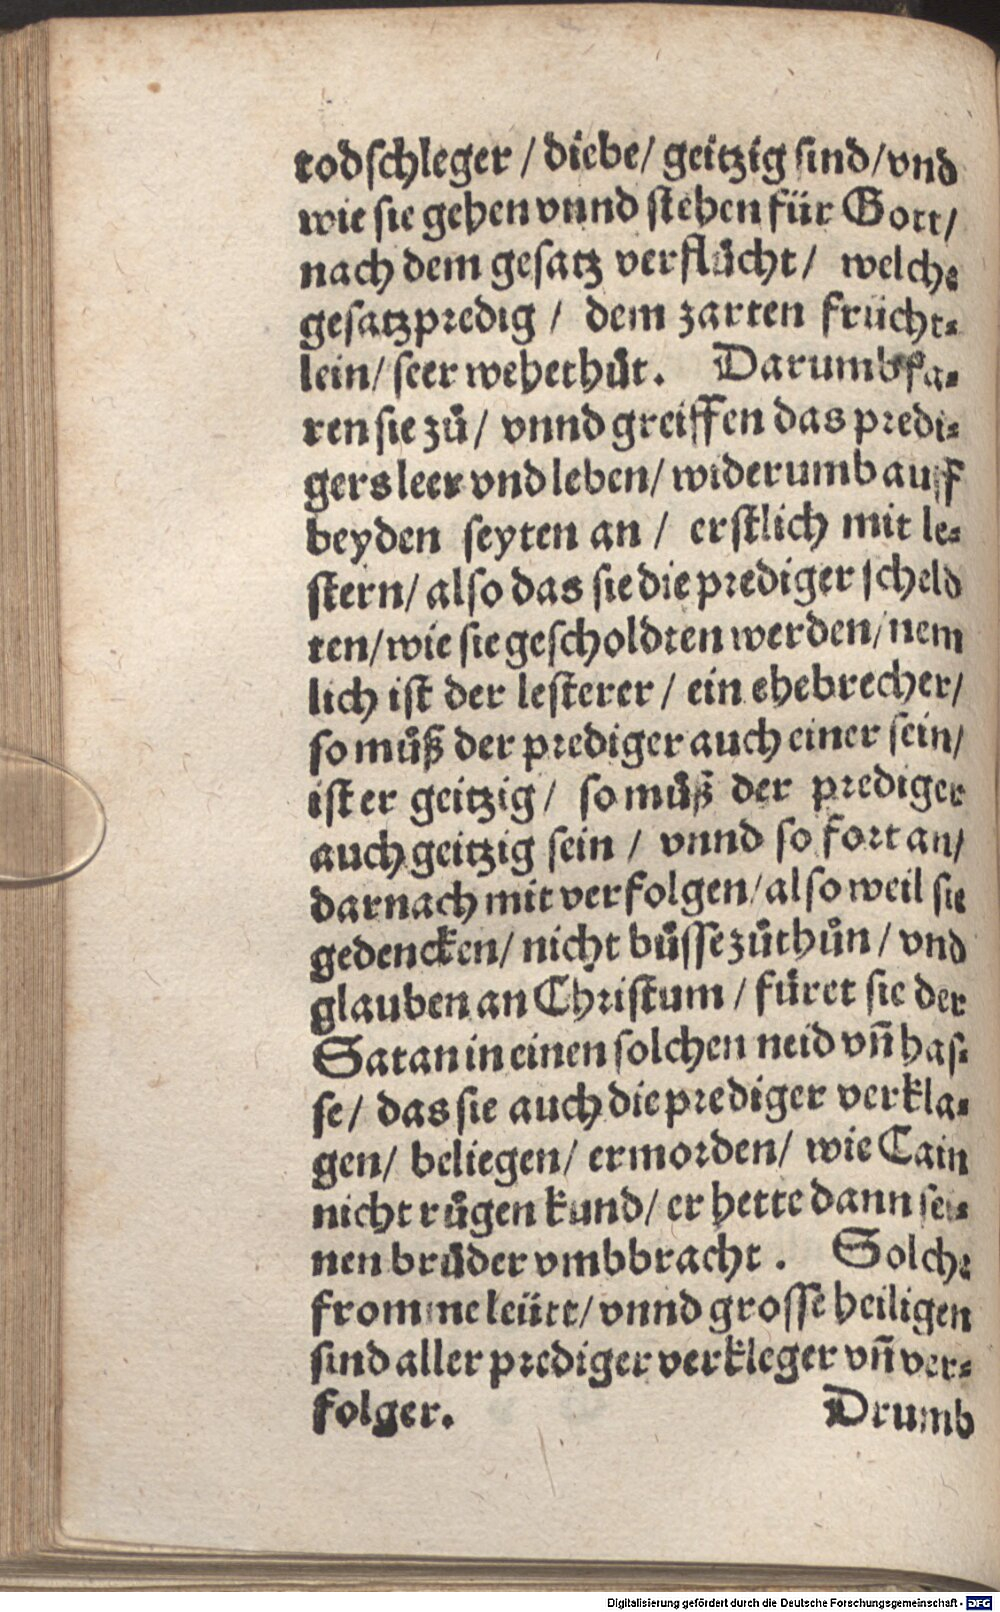 todſchleger / diebe / geitzig ſind / vnd
wie ſie gehen vnnd ſtehen für Gott /
nach dem geſatz verflůcht / welche
geſatzpredig / dem zarten frücht⸗
lein / ſeer wehethůt. Darumb fa⸗
ren ſie zů / vnnd greiffen das predi⸗
gers leer vnd leben / widerumb auff
beyden ſeyten an / erſtlich mit le⸗
ſtern / alſo das ſie die prediger ſcheld
ten / wie ſie geſcholdten werden / nem
lich iſt der leſterer / ein ehebrecher /
ſo můß der prediger auch einer ſein /
iſt er geitzig / ſo můß der prediger
auch geitzig ſein / vnnd ſo fort an /
darnach mit verfolgen / alſo weil ſie
gedencken / nicht bůſſe zůthůn / vnd
glauben an Chriſtum / füret ſie der
Satan in einen ſolchen neid vñ haſ⸗
ſe / das ſie auch die prediger verkla⸗
gen / beliegen / ermorden / wie Cain
nicht růgen kund / er hette dann ſei⸗
nen brůder vmbbracht. Solche
fromme leütt / vnnd groſſe heiligen
ſind aller prediger verkleger vñ ver⸗
folger. Drumb
Digitalisierung gefördert durch die Deutsche Forschungsgemeinschaft - DFG